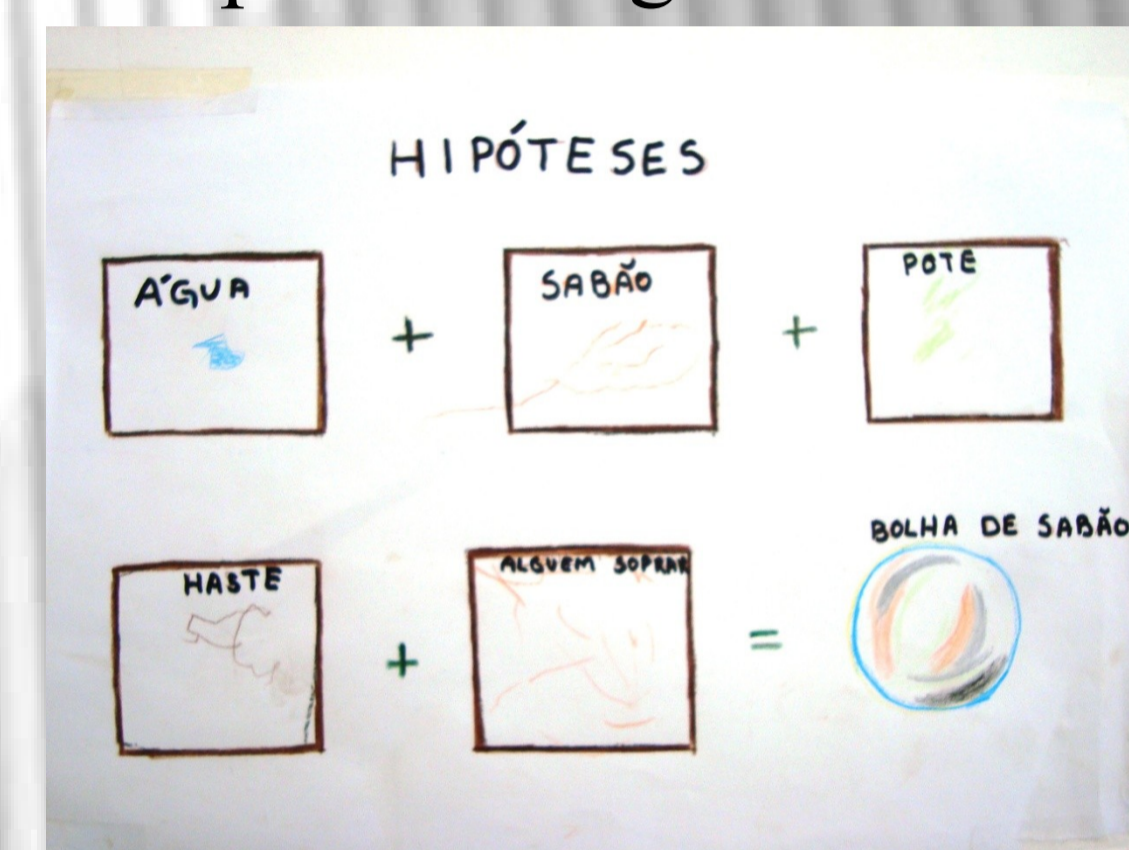 HIPÓTESES
ÁGUA + SABÃO + POTE
HASTE + ALGUEM SOPRAR = BOLHA DE SABÃO